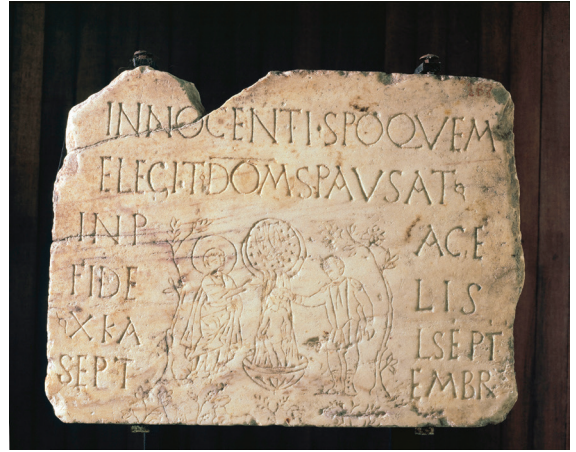 INNOCENTI·SPOQVEM
ELEGITDOMSPAVSAT
INP ACE
FIDE LIS
XKA LSEPT
SEPT EMBR